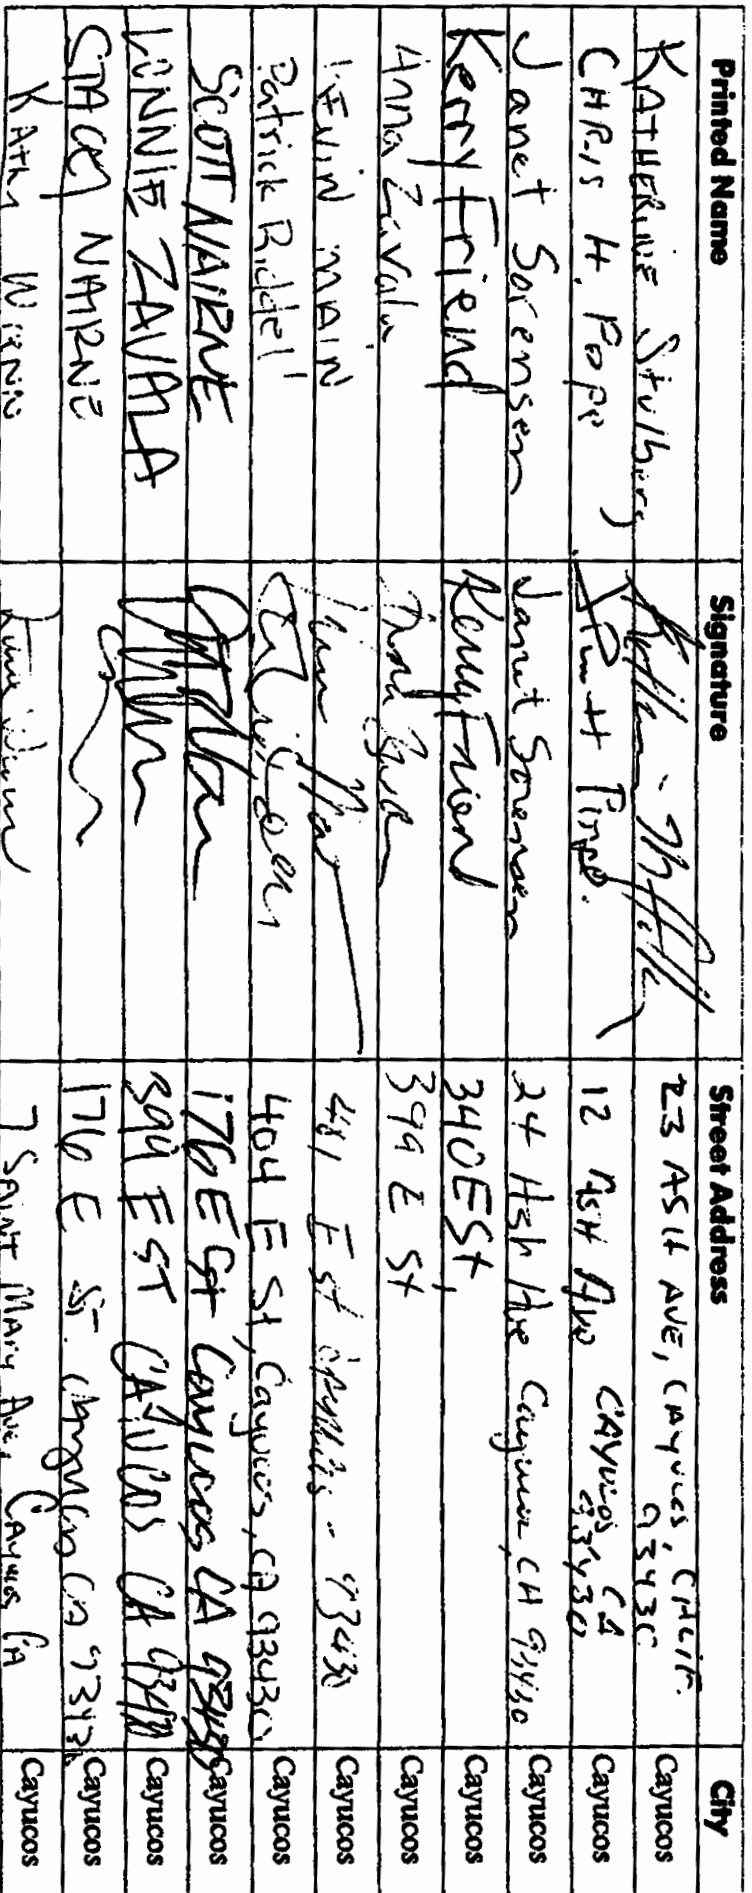 Printed Name Signature Street Address City
KATHERINE 23 ASH AVE, CAYUCOS, CALIF. 93430 Cayucos
CHRIS H. Pope 12 ASH Ave CAYUCOS, CA 93430 Cayucos
Janet Sorensen Janet Sorensen 24 Ash Ave Cayucos, CA 93430 Cayucos
Kerry Friend Kerry Friend 340 E St, Cayucos
Anna Zavala 399 E St Cayucos
KEVIN MAIN E St 93430 Cayucos
Patrick Riddell 404 E St, Cayucos, CA 93430 Cayucos
SCOTT NAIRNE 176 E St Cayucos CA 93430 Cayucos
LONNIE ZAVALA 399 E ST CAYUCOS CA 93430 Cayucos
STACEY NAIRNE 176 E St. Cayucos Ca 93430 Cayucos
KATHY 7 SAINT MARY AVE, CAYUCOS CA Cayucos